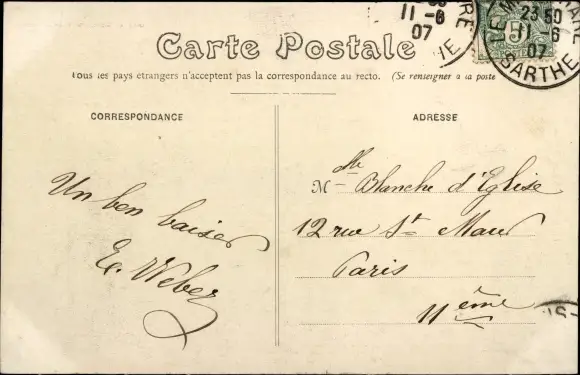 Carte Postale
Tous les pays étrangers n'acceptent pas la correspondance au recto. (Se renseigner à la poste
CORRESPONDANCE
ADRESSE
Un bon baiser
E. Weber
Mlle
M Blanche d'Eglise
12 rue St Maur
Paris
11ème
11 -6
07
23 50
11 -6
07
SARTHE
5